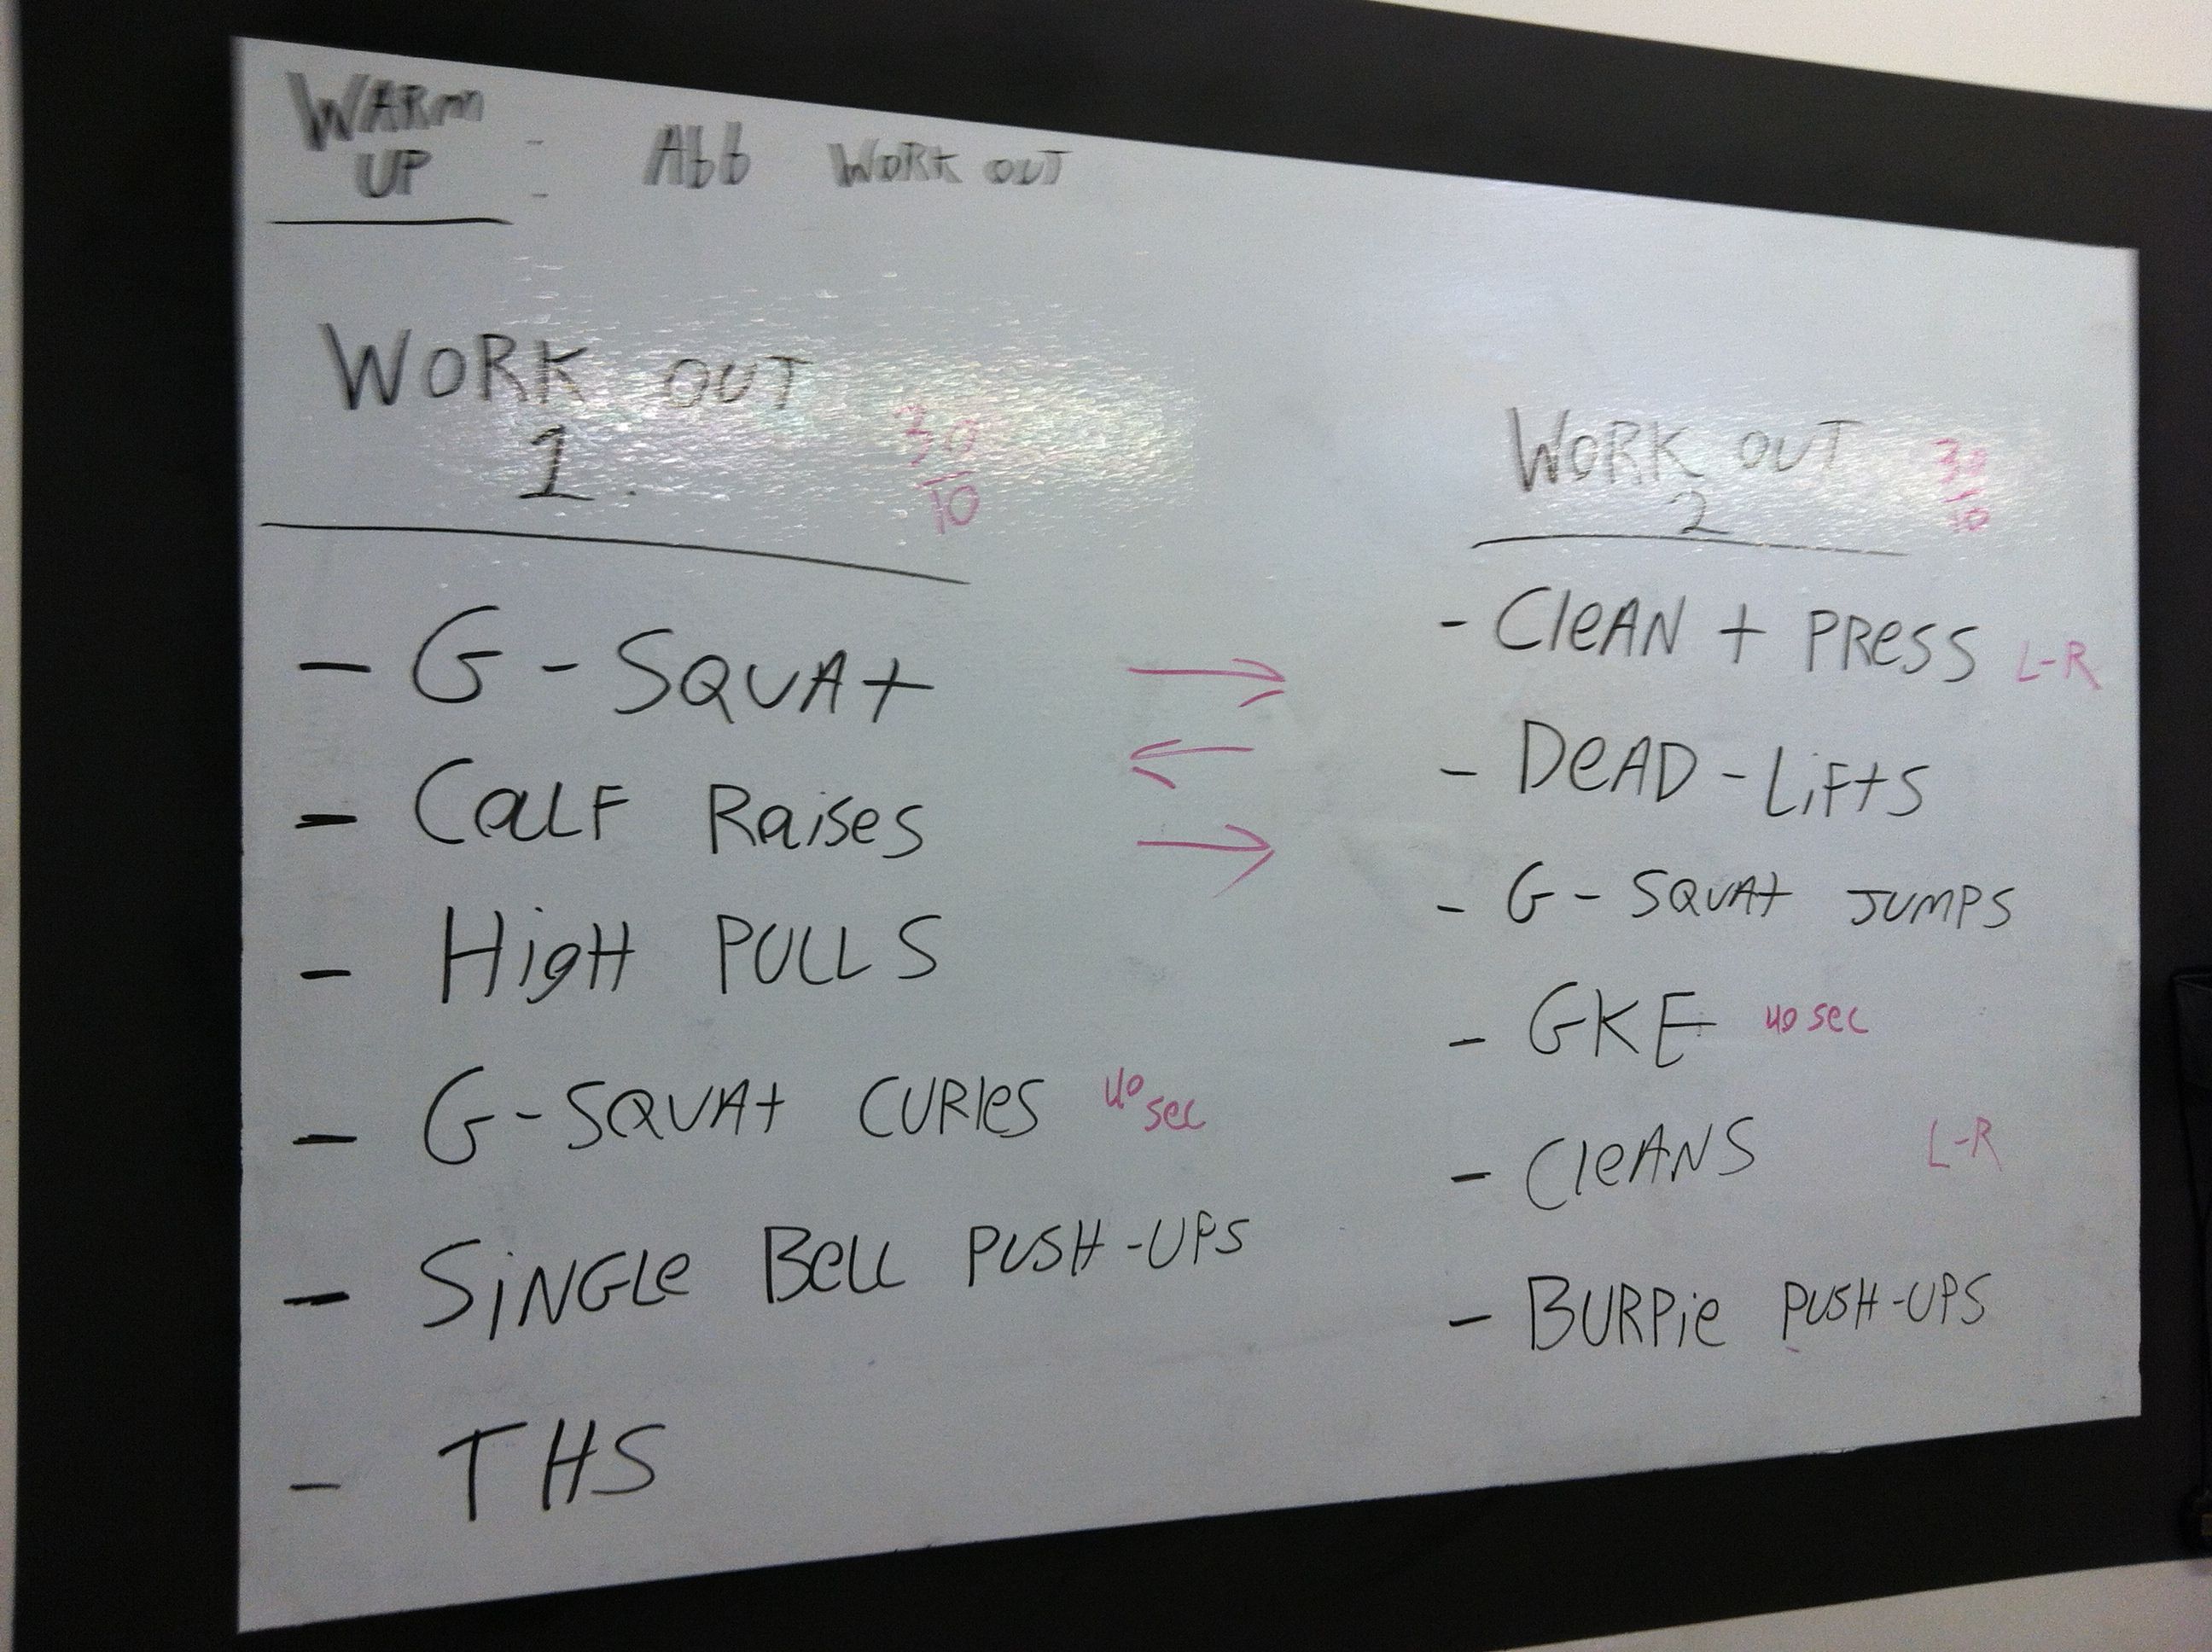 WARM
UP : Abb WORK OUT
WORK OUT
1.
30
10
- G-SQUAt
- CaLF Raises
- HigH PULLS
- G-SQUAt CURles 40 sec
- SiNGLe BeLL PUSH-UPS
- THS
WORK OUT
2
30
10
- CleAN + PRess L-R
- DeAD-LiFtS
- G-SQUAt JUMPS
- GKE 40 sec
- CleANS L-R
- BURPie PUSH-UPS